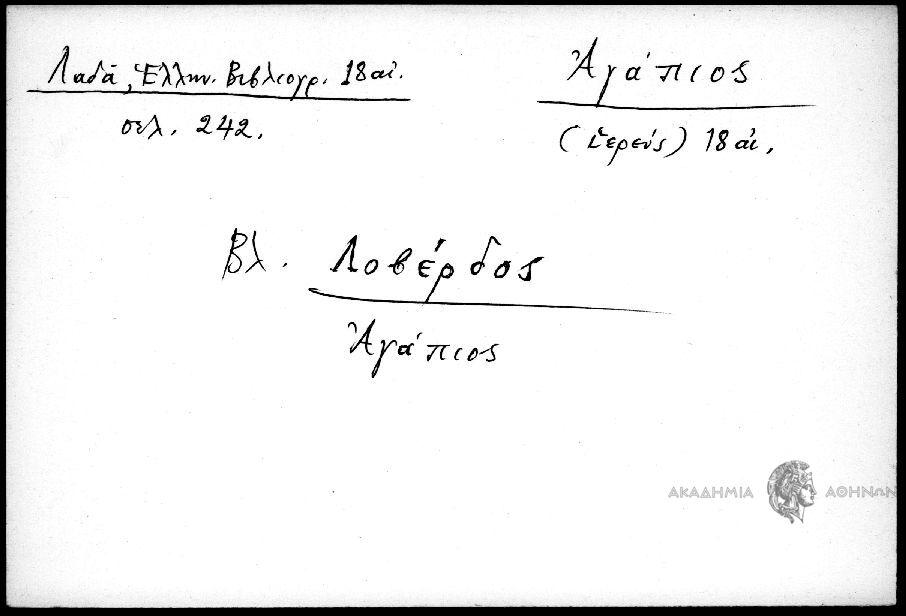 Λαδᾶ, Ἑλλην. Βιβλιογρ. 18 αἰ.
σελ. 242.
Ἀγάπιος
(ἱερεύς) 18 αἰ.
Βλ. Λοβέρδος
Ἀγάπιος
ΑΚΑΔΗΜΙΑ ΑΘΗΝΩΝ